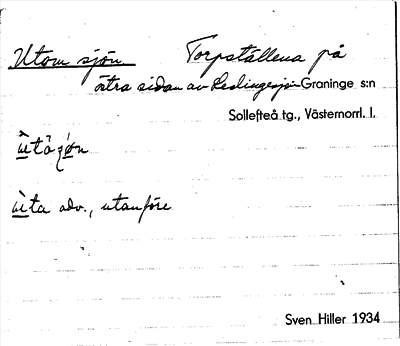 Utom sjön Torpställena på
östra sidan av Ledingesjön Graninge s:n
Sollefteå tg., Västernorrl. l.
ùtå ʃön
ùta adv., utanföre
Sven Hiller 1934